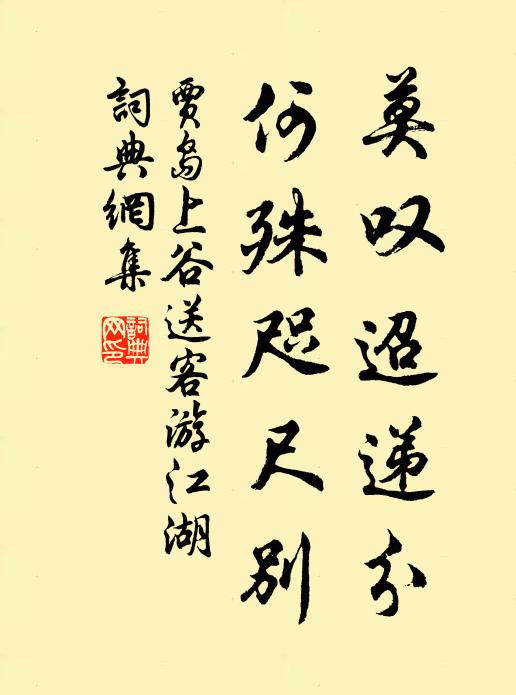 莫叹迢递分
何殊咫尺别
賈島上谷送客游江湖
詞典網集
詞典網印